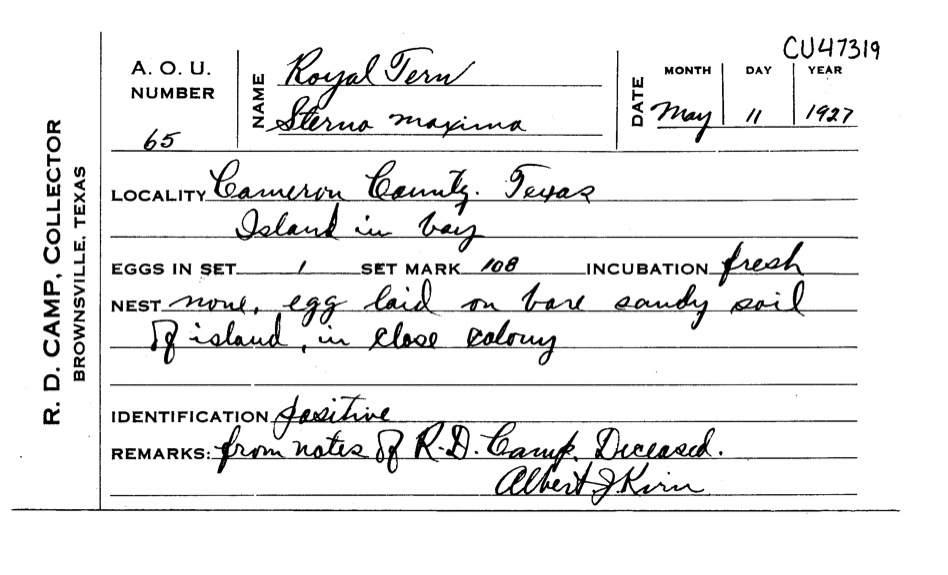 CU47319
A. O. U.
NUMBER
65
NAME Royal Tern
Sterna maxima
DATE
MONTH DAY YEAR
May 11 1927
R. D. CAMP, COLLECTOR
BROWNSVILLE, TEXAS
LOCALITY Cameron County. Texas
Island in bay
EGGS IN SET 1 SET MARK 108 INCUBATION fresh
NEST none, egg laid on bare sandy soil
of island, in close colony
IDENTIFICATION positive
REMARKS: from notes of R.D. Camp. Deceased.
Albert J. Kirn